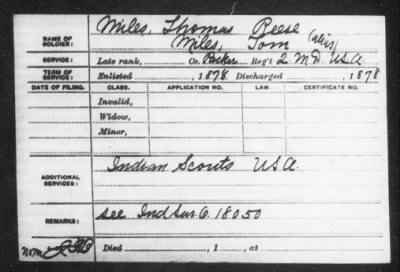 Miles, Thomas Reese
NAME OF SOLDIER: Miles, Tom (alias)
SERVICE: Late rank, Co. Packer Reg't 2 M D. USA.
TERM OF SERVICE: Enlisted , 1878 Discharged , 1878
DATE OF FILING. CLASS. APPLICATION NO. LAW. CERTIFICATE NO.
Invalid,
Widow,
Minor,
ADDITIONAL SERVICES: Indian Scouts USA.
REMARKS: see Ind Sur 6. 18050
Died , 1 , at